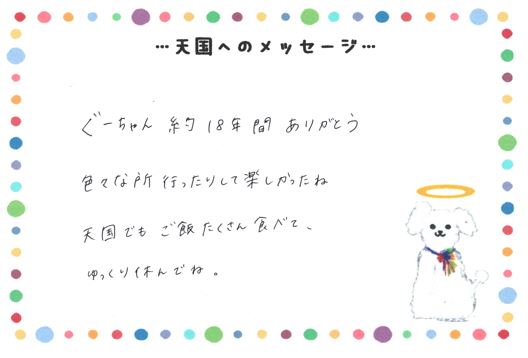 …天国へのメッセージ…
ぐーちゃん 約18年間 ありがとう
色々な所 行ったりして楽しかったね
天国でも ご飯たくさん食べて、
ゆっくり休んでね。